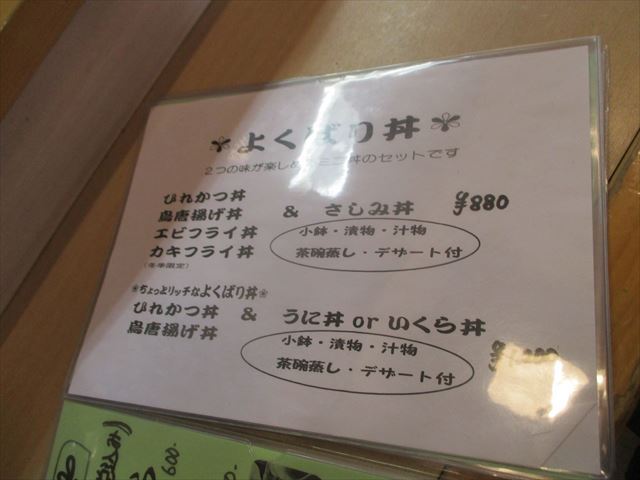 よくばり丼
2つの味が楽しめるミニ丼のセットです
ひれかつ丼
鳥唐揚げ丼 & さしみ丼 ¥880
エビフライ丼 小鉢・漬物・汁物
カキフライ丼 茶碗蒸し・デザート付
(冬季限定)
※ちょっとリッチなよくばり丼※
ひれかつ丼 & うに丼 or いくら丼
鳥唐揚げ丼 小鉢・漬物・汁物
茶碗蒸し・デザート付
600.